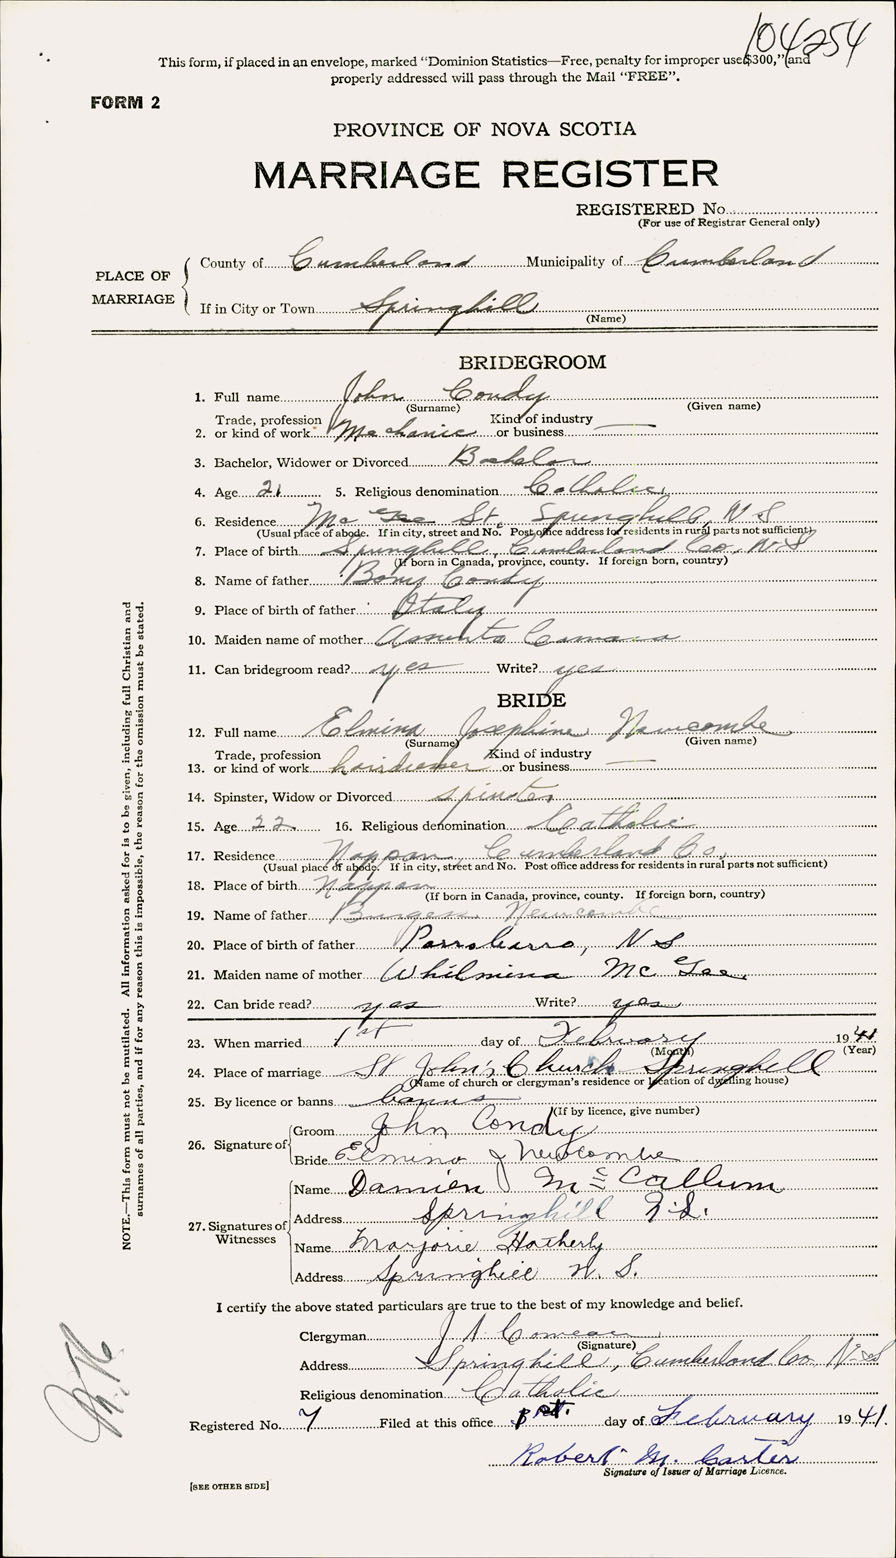 104254
This form, if placed in an envelope, marked "Dominion Statistics—Free, penalty for improper use $300," and
properly addressed will pass through the Mail "FREE".
FORM 2
PROVINCE OF NOVA SCOTIA
MARRIAGE REGISTER
REGISTERED No.
(For use of Registrar General only)
PLACE OF MARRIAGE
County of Cumberland Municipality of Cumberland
If in City or Town Springhill
(Name)
BRIDEGROOM
1. Full name John Condy
(Surname) (Given name)
Trade, profession Kind of industry
2. or kind of work Mechanic or business —
3. Bachelor, Widower or Divorced Bachelor
4. Age 21 5. Religious denomination Catholic
6. Residence McGee St, Springhill, N S
(Usual place of abode. If in city, street and No. Post office address for residents in rural parts not sufficient)
7. Place of birth Springhill, Cumberland Co, N S
(If born in Canada, province, county. If foreign born, country)
8. Name of father Condy
9. Place of birth of father Italy
10. Maiden name of mother
11. Can bridegroom read? yes Write? yes
BRIDE
12. Full name Elmina Josephine Newcombe
(Surname) (Given name)
Trade, profession Kind of industry
13. or kind of work hairdresser or business —
14. Spinster, Widow or Divorced spinster
15. Age 22 16. Religious denomination Catholic
17. Residence Nappan, Cumberland Co.
(Usual place of abode. If in city, street and No. Post office address for residents in rural parts not sufficient)
18. Place of birth Nappan
(If born in Canada, province, county. If foreign born, country)
19. Name of father Burgess Newcombe
20. Place of birth of father Parrsboro, N S
21. Maiden name of mother Whilmina McGee
22. Can bride read? yes Write? yes
23. When married 1st day of February 1941
(Month) (Year)
24. Place of marriage St John's Church Springhill
(Name of church or clergyman's residence or location of dwelling house)
25. By licence or banns banns
(If by licence, give number)
26. Signature of
Groom John Condy
Bride Elmina J Newcombe
27. Signatures of Witnesses
Name Damien McCallum
Address Springhill N.S.
Name Marjorie Hatherly
Address Springhill N. S.
I certify the above stated particulars are true to the best of my knowledge and belief.
Clergyman J A Comeau
(Signature)
Address Springhill, Cumberland Co N S
Religious denomination Catholic
Registered No. 7 Filed at this office 1st. day of February 1941.
Robert M. Carter
Signature of Issuer of Marriage Licence.
[SEE OTHER SIDE]
NOTE.—This form must not be mutilated. All information asked for is to be given, including full Christian and
surnames of all parties, and if for any reason this is impossible, the reason for the omission must be stated.